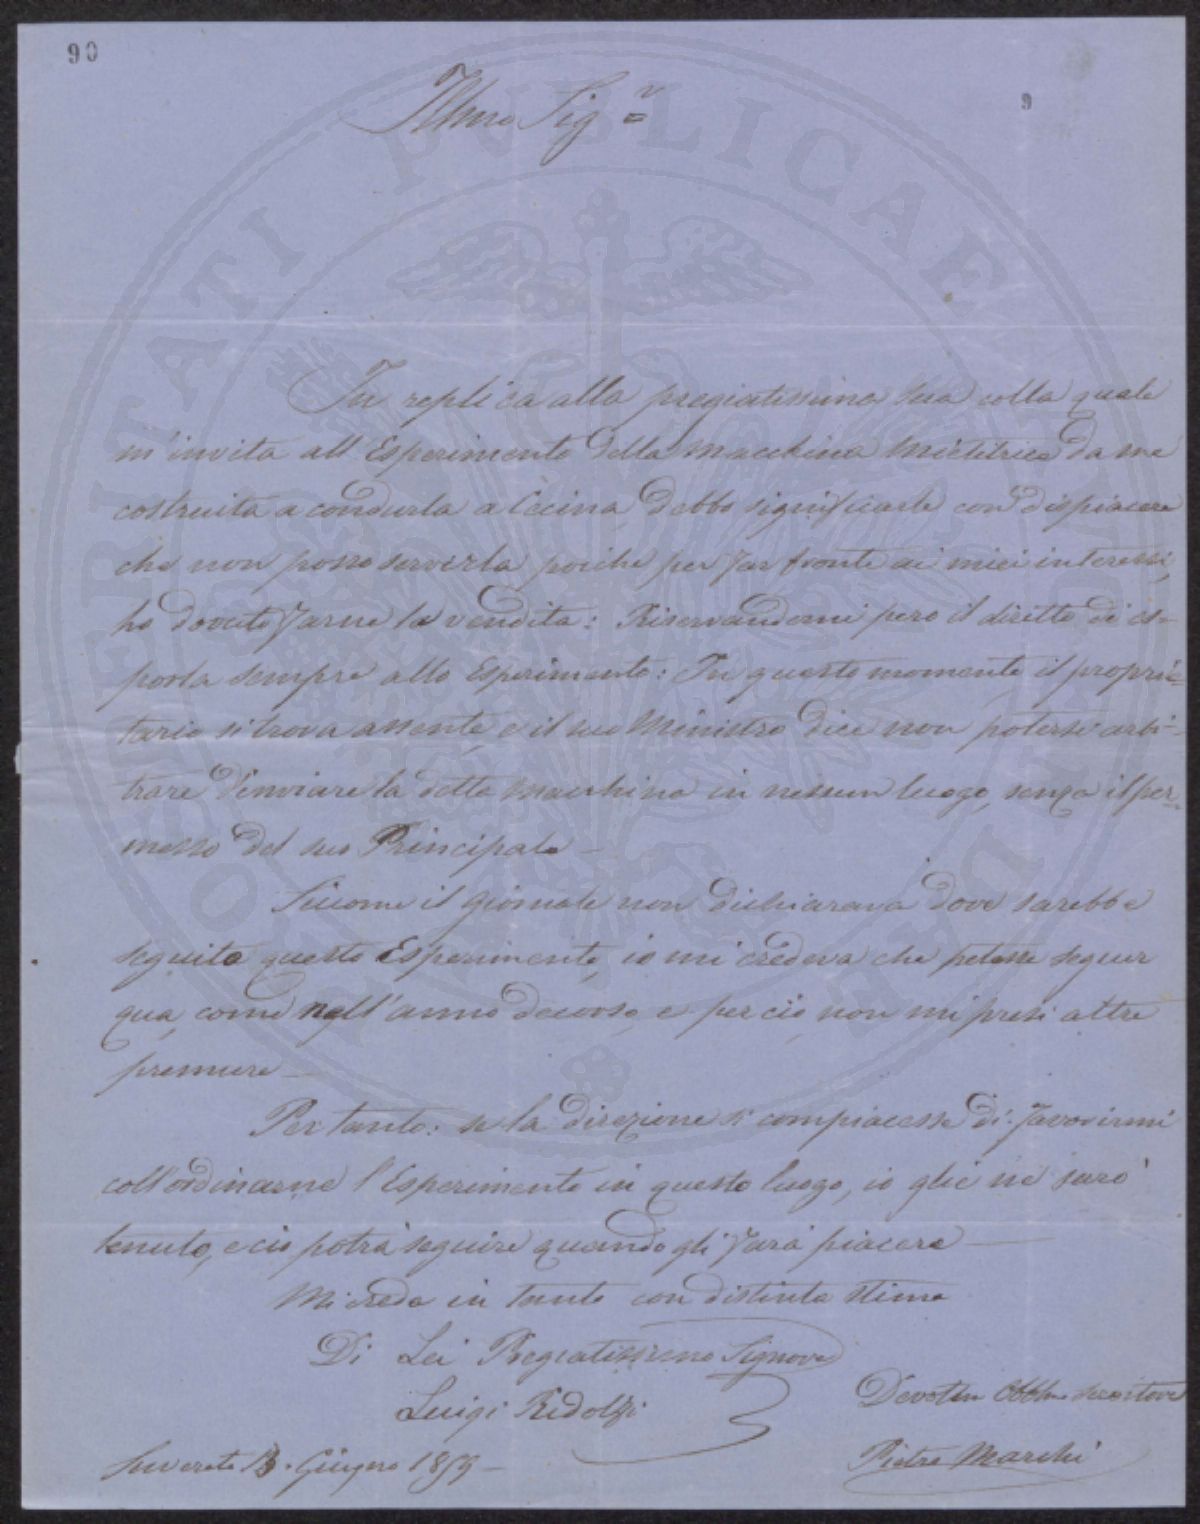 90
9
Illmo Sigr
In replica alla pregiatissima Sua colla quale
m'invita all'Esperimento della Macchina Mietitrice da me
costruita a condurla a Cecina, debbo significarle con dispiacere
che non posso servirla poiche per far fronte ai miei interessi,
ho dovuto farne la vendita: Riservandomi pero il diritto di es-
porla sempre allo Esperimento: In questo momento il proprie-
tario si trova assente, e il suo Ministro dice non potersi arbi-
trare d'inviare la detta Macchina in nessun luogo, senza il per-
messo del suo Principale —
Siccome il Giornale non dichiarava dove sarebbe
seguito questo Esperimento, io mi credeva che potesse seguir
qua, come nell'anno decorso, e per ciò, non mi presi altre
premure —
Per tanto: se la direzione si compiacesse di favorirmi
coll'ordinarne l'Esperimento in questo luogo, io glie ne sarò
tenuto, e cio potrà seguire quando gli farà piacere —
Mi creda in tanto con distinta stima
Di Lei Pregiatissimo Signore
Luigi Ridolfi
Devotmo Obblmo Servitore
Suvereto 13. Giugno 1859 —
Pietro Marchi
POSTERITATI PUBLICAE